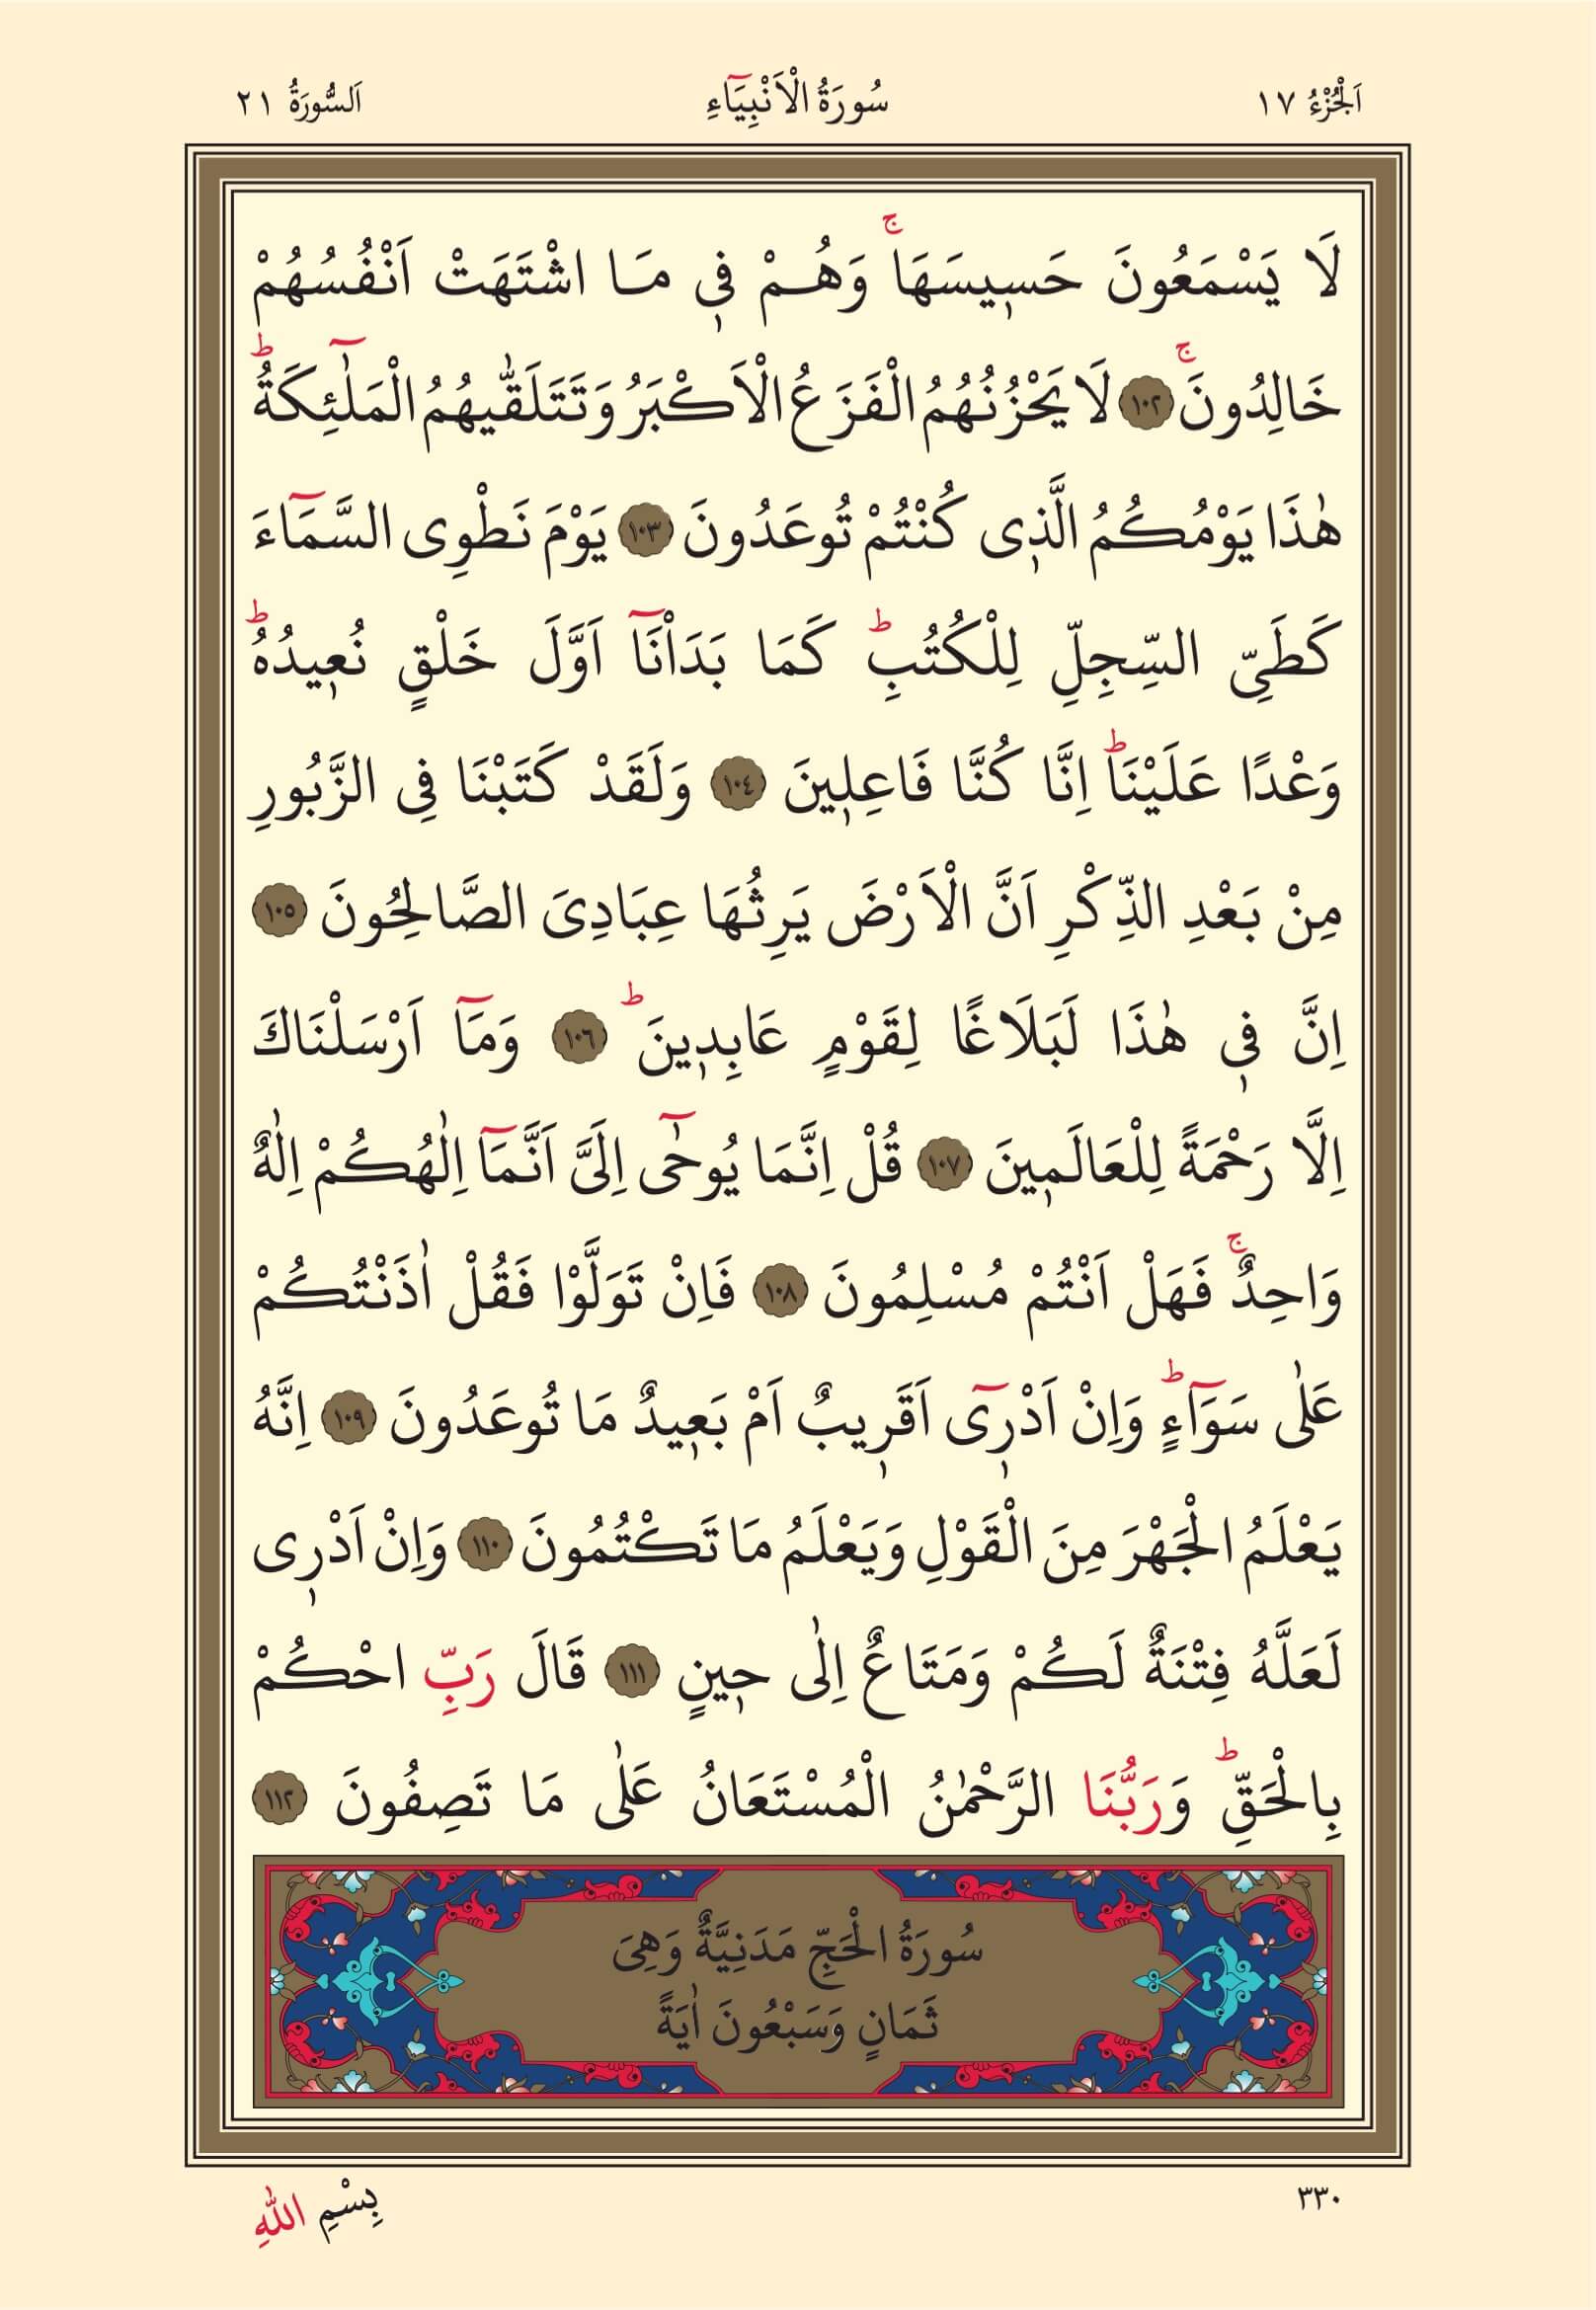 اَلْجُزْءُ ١٧
سُورَةُ الْاَنْبِيَٓاءِ
اَلسُّورَةُ ٢١
لَا يَسْمَعُونَ حَس۪يسَهَاۚ وَهُمْ ف۪ي مَا اشْتَهَتْ اَنْفُسُهُمْ
خَالِدُونَۚ ١٠٢ لَا يَحْزُنُهُمُ الْفَزَعُ الْاَكْبَرُ وَتَتَلَقّٰيهُمُ الْمَلٰٓئِكَةُۜ
هٰذَا يَوْمُكُمُ الَّذ۪ى كُنْتُمْ تُوعَدُونَ ١٠٣ يَوْمَ نَطْوِى السَّمَٓاءَ
كَطَىِّ السِّجِلِّ لِلْكُتُبِۜ كَمَا بَدَاْنَٓا اَوَّلَ خَلْقٍ نُع۪يدُهُۜ
وَعْدًا عَلَيْنَاۜ اِنَّا كُنَّا فَاعِل۪ينَ ١٠٤ وَلَقَدْ كَتَبْنَا فِى الزَّبُورِ
مِنْ بَعْدِ الذِّكْرِ اَنَّ الْاَرْضَ يَرِثُهَا عِبَادِىَ الصَّالِحُونَ ١٠٥
اِنَّ ف۪ى هٰذَا لَبَلَاغًا لِقَوْمٍ عَابِد۪ينَۜ ١٠٦ وَمَٓا اَرْسَلْنَاكَ
اِلَّا رَحْمَةً لِلْعَالَم۪ينَ ١٠٧ قُلْ اِنَّمَا يُوحٰٓى اِلَىَّ اَنَّمَٓا اِلٰهُكُمْ اِلٰهٌ
وَاحِدٌۚ فَهَلْ اَنْتُمْ مُسْلِمُونَ ١٠٨ فَاِنْ تَوَلَّوْا فَقُلْ اٰذَنْتُكُمْ
عَلٰى سَوَٓاءٍۜ وَاِنْ اَدْر۪ٓى اَقَر۪يبٌ اَمْ بَع۪يدٌ مَا تُوعَدُونَ ١٠٩ اِنَّهُ
يَعْلَمُ الْجَهْرَ مِنَ الْقَوْلِ وَيَعْلَمُ مَا تَكْتُمُونَ ١١٠ وَاِنْ اَدْر۪ى
لَعَلَّهُ فِتْنَةٌ لَكُمْ وَمَتَاعٌ اِلٰى ح۪ينٍ ١١١ قَالَ رَبِّ احْكُمْ
بِالْحَقِّۜ وَرَبُّنَا الرَّحْمٰنُ الْمُسْتَعَانُ عَلٰى مَا تَصِفُونَ ١١٢
سُورَةُ الْحَجِّ مَدَنِيَّةٌ وَهِىَ
ثَمَانٍ وَسَبْعُونَ اٰيَةً
٣٣٠
بِسْمِ اللّٰهِ